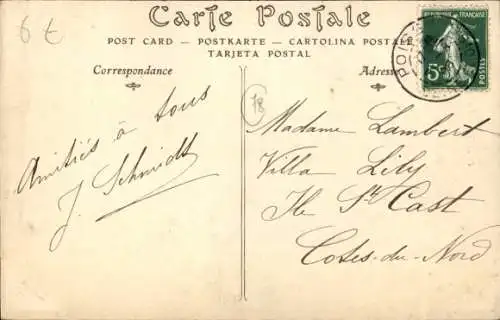 6€
Carte Postale
POST CARD — POSTKARTE — CARTOLINA POSTALE
TARJETA POSTAL
Correspondance
Adresse
RÉPUBLIQUE FRANÇAISE
5c
POSTES
18
Amitiés à tous
J. Schmidt
Madame Lambert
Villa Lily
Ile St Cast
Cotes-du-Nord